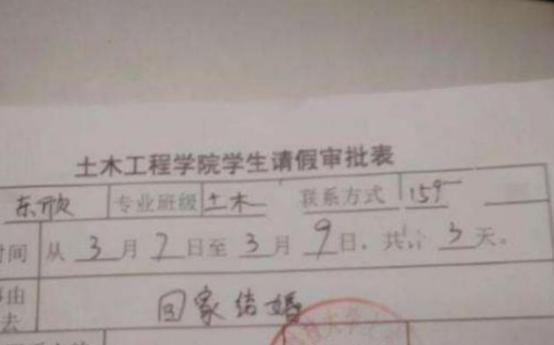 土木工程学院学生请假审批表
东欣 专业班级 土木 联系方式 159
时间 从 3 月 7 日至 3 月 9 日，共计 3 天。
由 回家结婚
去
大学